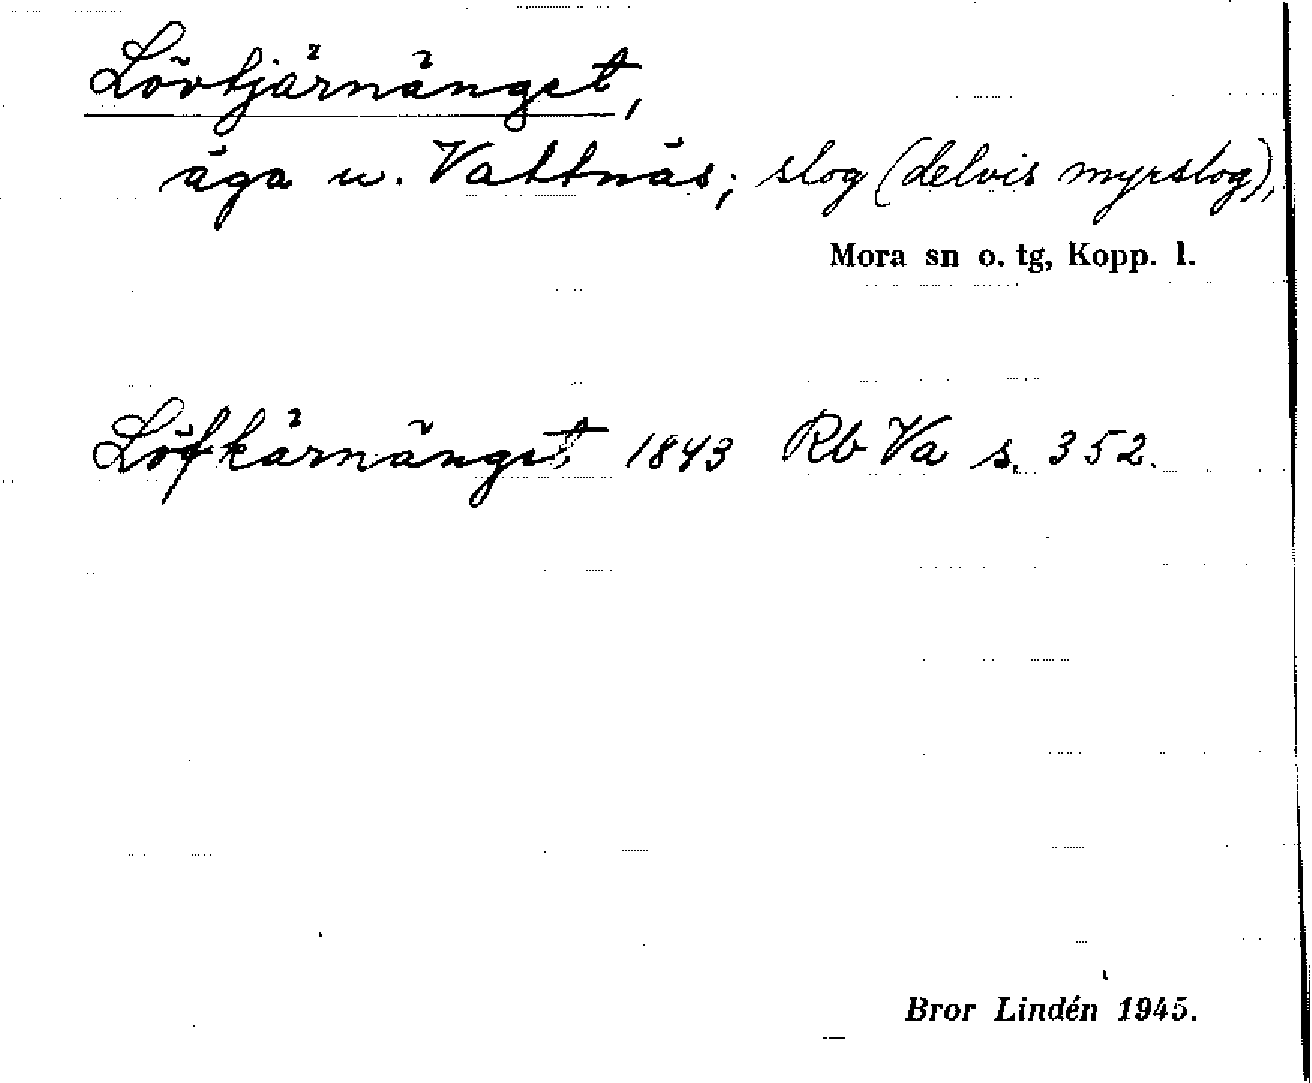 Lövtjärnänget,
äga u. Vattnäs; slog (delvis myrslog),
Mora sn o. tg, Kopp. l.
Löfkärnänget, 1843 Rb Va s. 352.
Bror Lindén 1945.